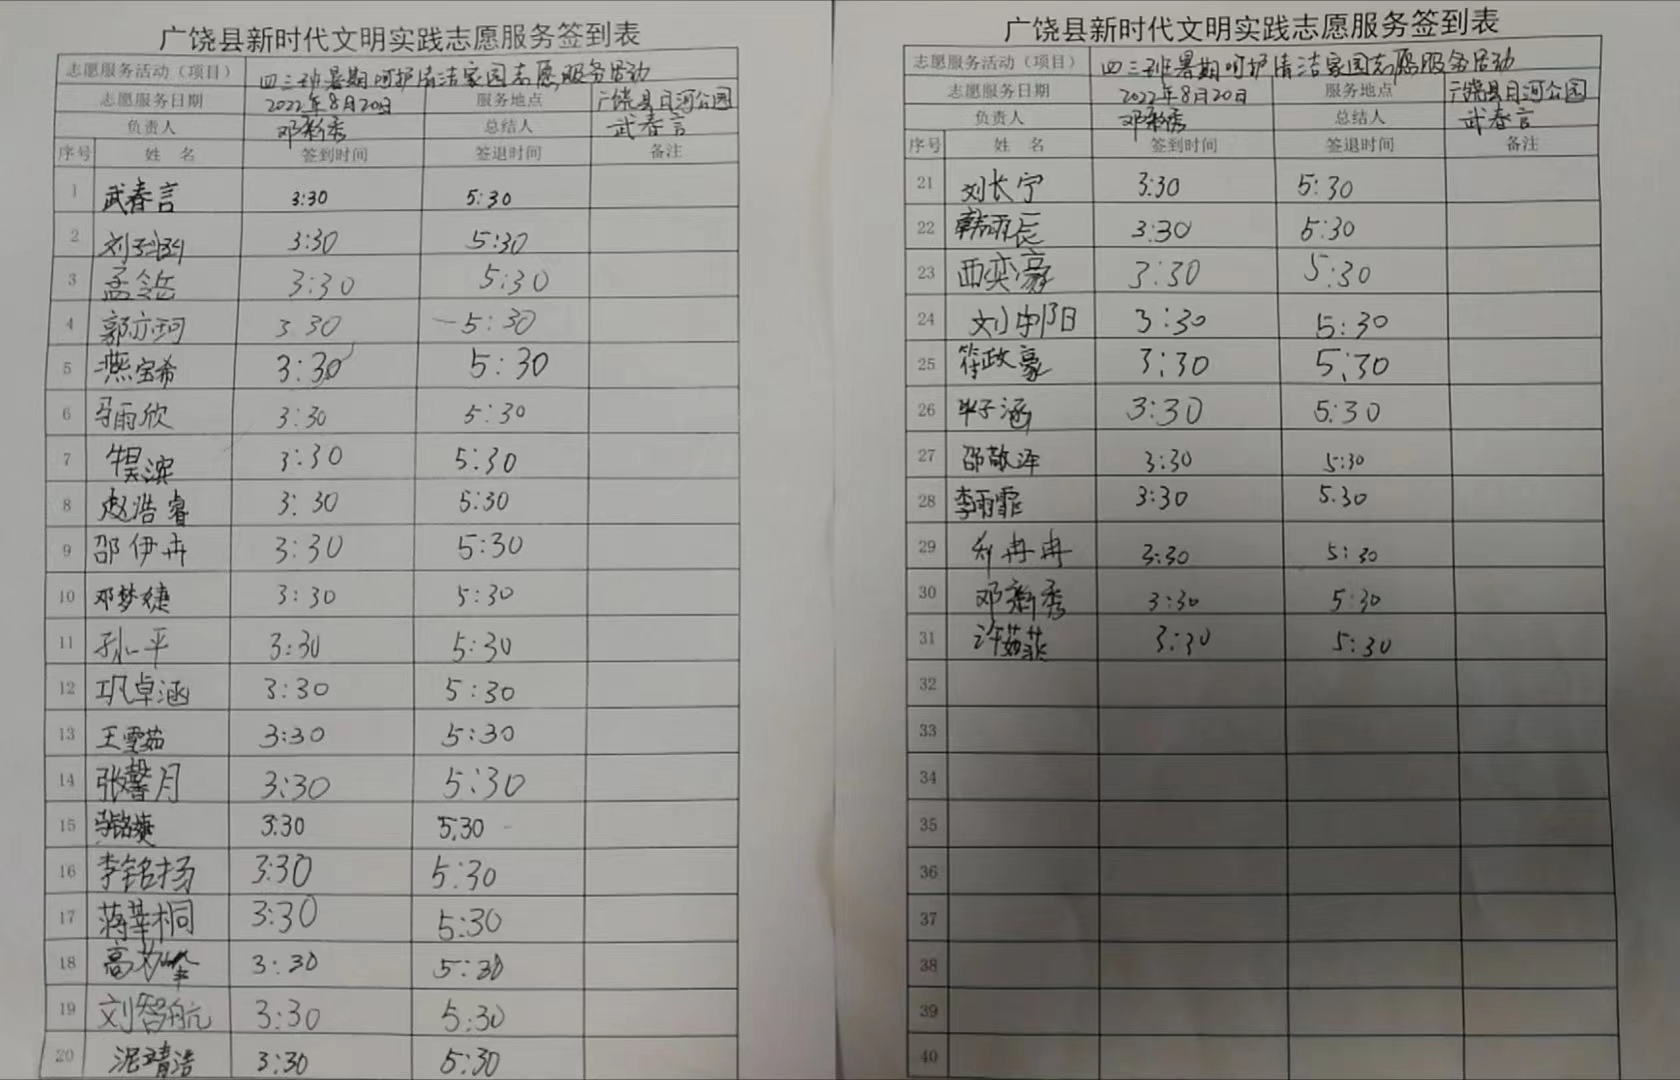 广饶县新时代文明实践志愿服务签到表
志愿服务活动（项目） 四三班暑期呵护清洁家园志愿服务活动
志愿服务日期 2022年8月20日 服务地点 广饶县月河公园
负责人 邓新秀 总结人 武春言
序号 姓 名 签到时间 签退时间 备注
1 武春言 3:30 5:30
2 刘子涵 3:30 5:30
3 孟令岳 3:30 5:30
4 郭亦珂 3:30 5:30
5 燕宝希 3:30 5:30
6 马雨欣 3:30 5:30
7 3:30 5:30
8 赵浩睿 3:30 5:30
9 邵伊卉 3:30 5:30
10 邓梦婕 3:30 5:30
11 孙一平 3:30 5:30
12 巩卓涵 3:30 5:30
13 王雪茹 3:30 5:30
14 张馨月 3:30 5:30
15 3:30 5:30
16 李铭扬 3:30 5:30
17 蒋莘桐 3:30 5:30
18 3:30 5:30
19 刘智航 3:30 5:30
20 3:30 5:30
广饶县新时代文明实践志愿服务签到表
志愿服务活动（项目） 四三班暑期呵护清洁家园志愿服务活动
志愿服务日期 2022年8月20日 服务地点 广饶县月河公园
负责人 邓新秀 总结人 武春言
序号 姓 名 签到时间 签退时间 备注
21 刘长宁 3:30 5:30
22 韩雨辰 3:30 5:30
23 西奕豪 3:30 5:30
24 3:30 5:30
25 符政豪 3:30 5:30
26 毕子涵 3:30 5:30
27 邵敬泽 3:30 5:30
28 李雨霏 3:30 5:30
29 郑冉冉 3:30 5:30
30 邓新秀 3:30 5:30
31 许茹菲 3:30 5:30
32
33
34
35
36
37
38
39
40